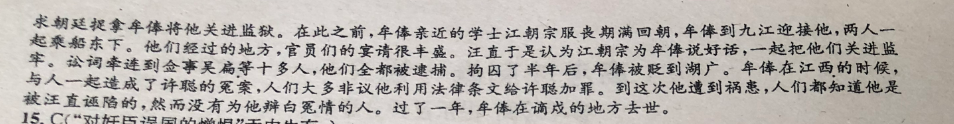 求朝廷捉拿牟俸将他关进监狱。在此之前,牟俸亲近的学士江朝宗服丧期满回朝,牟俸到九江迎接他,两人一
起乘船东下。他们经过的地方,官员们的宴请很丰盛。汪直于是认为江朝宗为牟俸说好话,一起把他们关进监
牢。讼词牵连到佥事吴扁等十多人,他们全都被逮捕。拘囚了半年后,牟俸被贬到湖广。牟俸在江西的时候,
与人一起造成了许聪的冤案,人们大多非议他利用法律条文给许聪加罪。到这次他遭到祸患,人们都知道他是
被汪直诬陷的,然而没有为他辩白冤情的人。过了一年,牟俸在谪戍的地方去世。
15. C("对奸臣误国的憎恨"无中生有。)